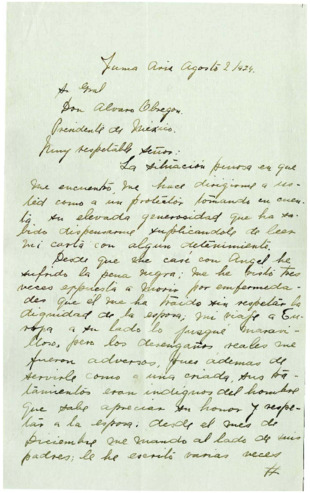 Yuma Ariz Agosto 2/924.
Sr Gral
Don Alvaro Obregon.
Presidente de Mexico.
Muy respetable Señor:
La situacion penosa en que
me encuentro, me hace dirigirme a us-
ted como a un protector tomando en cuen-
ta su elevada generosidad que ha sa-
bido dispensarme suplicandole de leer
mi carta con algun detenimiento.
Desde que me casé con Angel he
sufrido la pena negra; me he visto tres
veces expuesta a morir por enfermeda-
des que el me ha traido sin respetar la
dignidad de la esposa; mi viaje a Eu-
ropa a su lado lo juzgué maravi-
lloso, pero los desengaños reales me
fueron adversos. Pues ademas de
servirle como a una criada, sus tra-
tamientos eran indignos del hombre
que sabe apreciar su honor y respe-
tar a la esposa. desde el mes de
Diciembre me mando al lado de mis
padres; le he escrito varias veces